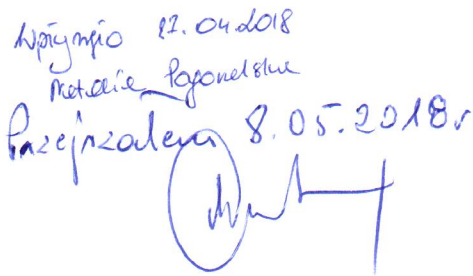 Wpłynęło 27.04.2018
Natalia
Przejrzałem 8.05.2018r